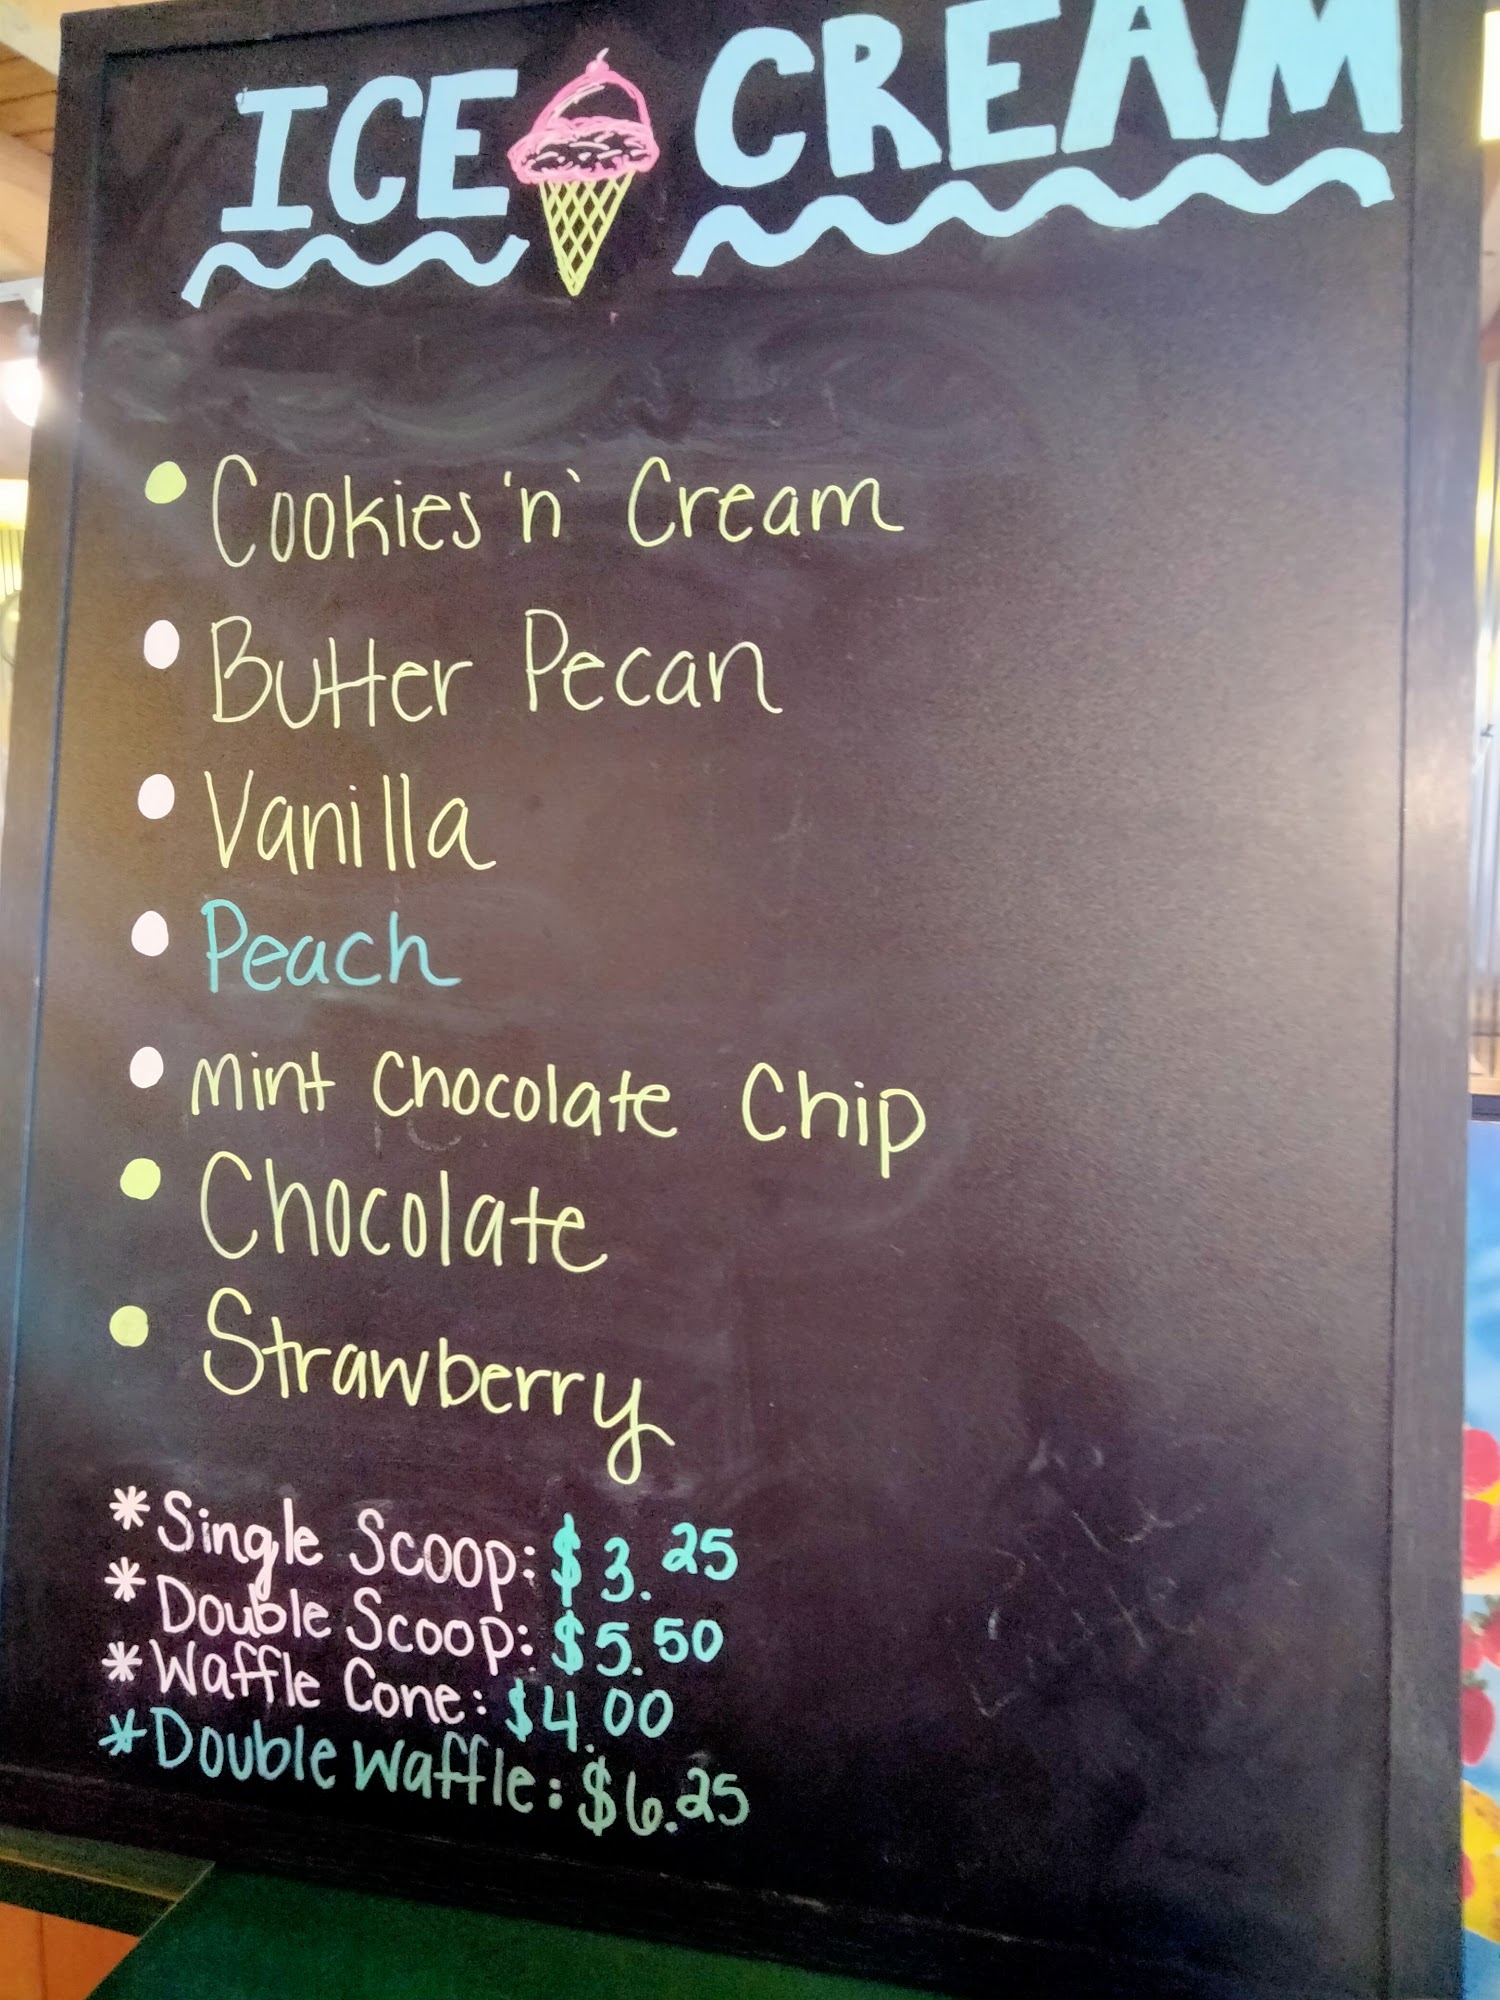 ICE CREAM
• Cookies 'n' Cream
• Butter Pecan
• Vanilla
• Peach
• Mint Chocolate Chip
• Chocolate
• Strawberry
* Single Scoop: $3.25
* Double Scoop: $5.50
* Waffle Cone: $4.00
* Double Waffle: $6.25